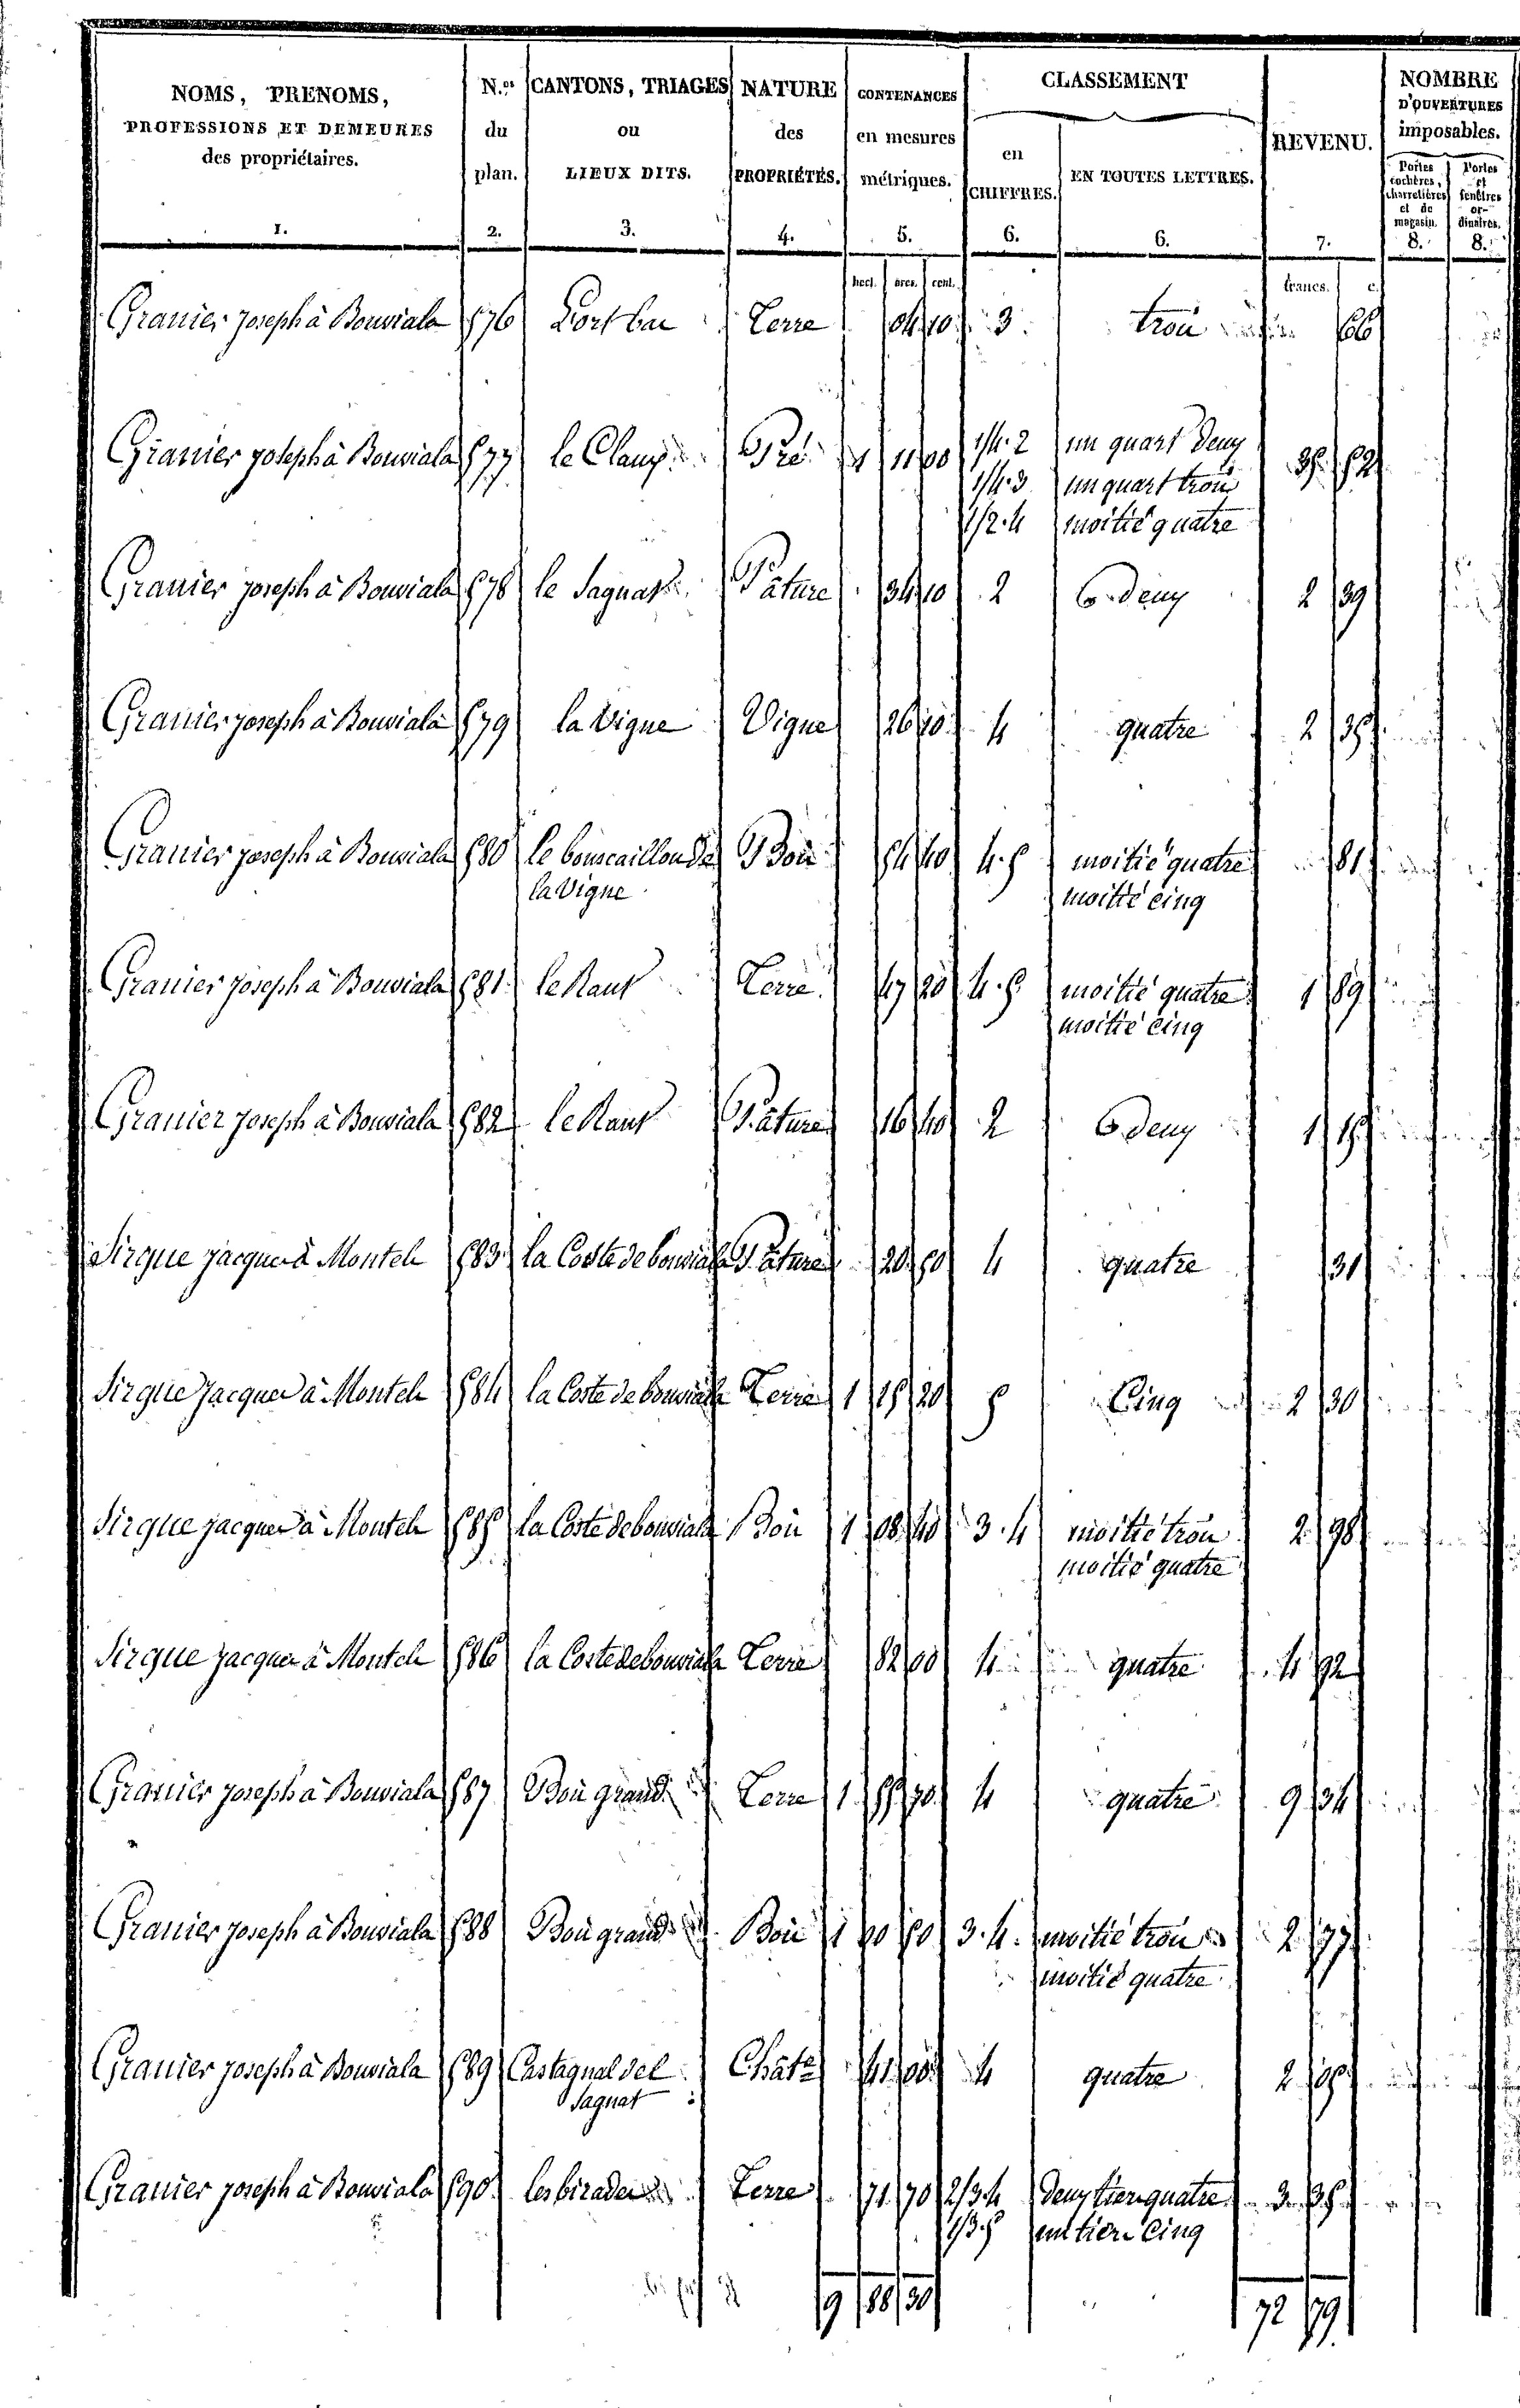 NOMS, PRENOMS, PROFESSIONS ET DEMEURES des propriétaires. 1.
N.os du plan. 2.
CANTONS, TRIAGES ou LIEUX DITS. 3.
NATURE des PROPRIÉTÉS. 4.
CONTENANCES en mesures métriques. 5.
CLASSEMENT
en CHIFFRES. 6.
EN TOUTES LETTRES. 6.
REVENU. 7.
NOMBRE D'OUVERTURES imposables.
Portes cochères, charretières et de magasin. 8.
Portes et fenêtres ordinaires. 8.
hect. ares. cent. francs. c.
Granier joseph à Bouviala 576 Terre 04 10 3 trois 66
Granier joseph à Bouviala 577 le Claux Pré 1 11 00 1/4.2 un quart deux 35 52
1/4.3 un quart trois
1/2.4 moitié quatre
Granier joseph à Bouviala 578 le Sagnas Pature 34 10 2 deux 2 39
Granier joseph à Bouviala 579 la Vigne Vigne 26 10 4 quatre 2 35
Granier joseph à Bouviala 580 le bouscaillou de Bois 54 40 4.5 moitié quatre 81
la Vigne moitié cinq
Granier joseph à Bouviala 581 le Rank Terre 47 20 4.5 moitié quatre 1 89
moitié cinq
Granier joseph à Bouviala 582 le Rank Pature 16 40 2 deux 1 15
Sirque jacques à Montels 583 la Coste de bouviala Pature 20 50 4 quatre 31
Sirque jacques à Montels 584 la Coste de bouviala Terre 1 15 20 5 Cinq 2 30
Sirque jacques à Montels 585 la Coste de bouviala Bois 1 08 40 3.4 moitié trois 2 98
moitié quatre
Sirque jacques à Montels 586 la Coste de bouviala Terre 82 00 4 quatre 4 92
Granier joseph à Bouviala 587 Bois grand Terre 1 55 70 4 quatre 9 34
Granier joseph à Bouviala 588 Bois grand Bois 1 00 50 3.4. moitié trois 2 77
moitié quatre
Granier joseph à Bouviala 589 Castagnal del Chât 41 00 4 quatre 2 05
Sagnat
Granier joseph à Bouviala 590 Terre 71 70 2/3 4 deux tiers quatre 3 35
1/3 5 un tiers Cinq
9 88 30 72 79